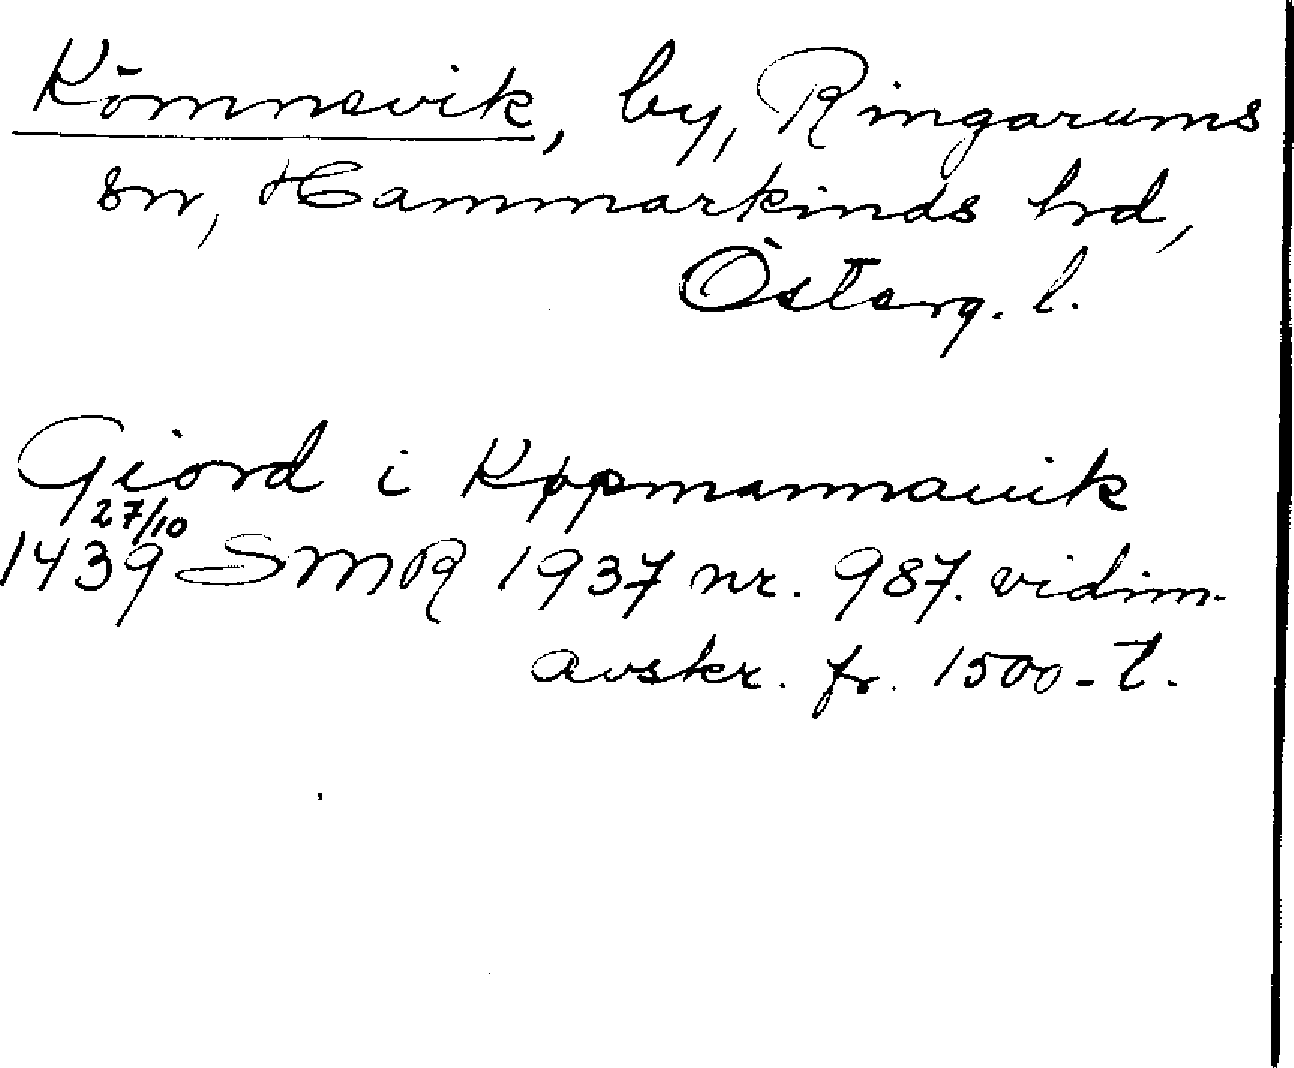 Kömnevik, by, Ringarums
sn, Hammarkinds hd,
Österg. l.
Giord i Køpmannauik
27/10
1439 SMR 1937 nr. 987. vidim.
avskr. fr. 1500-t.